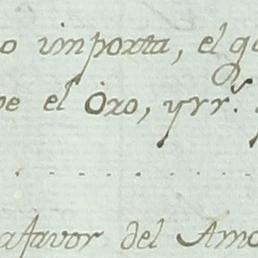 o importa, el q
e el Oro, yrr.^s
. . . . . . . . .
afavor del Amo